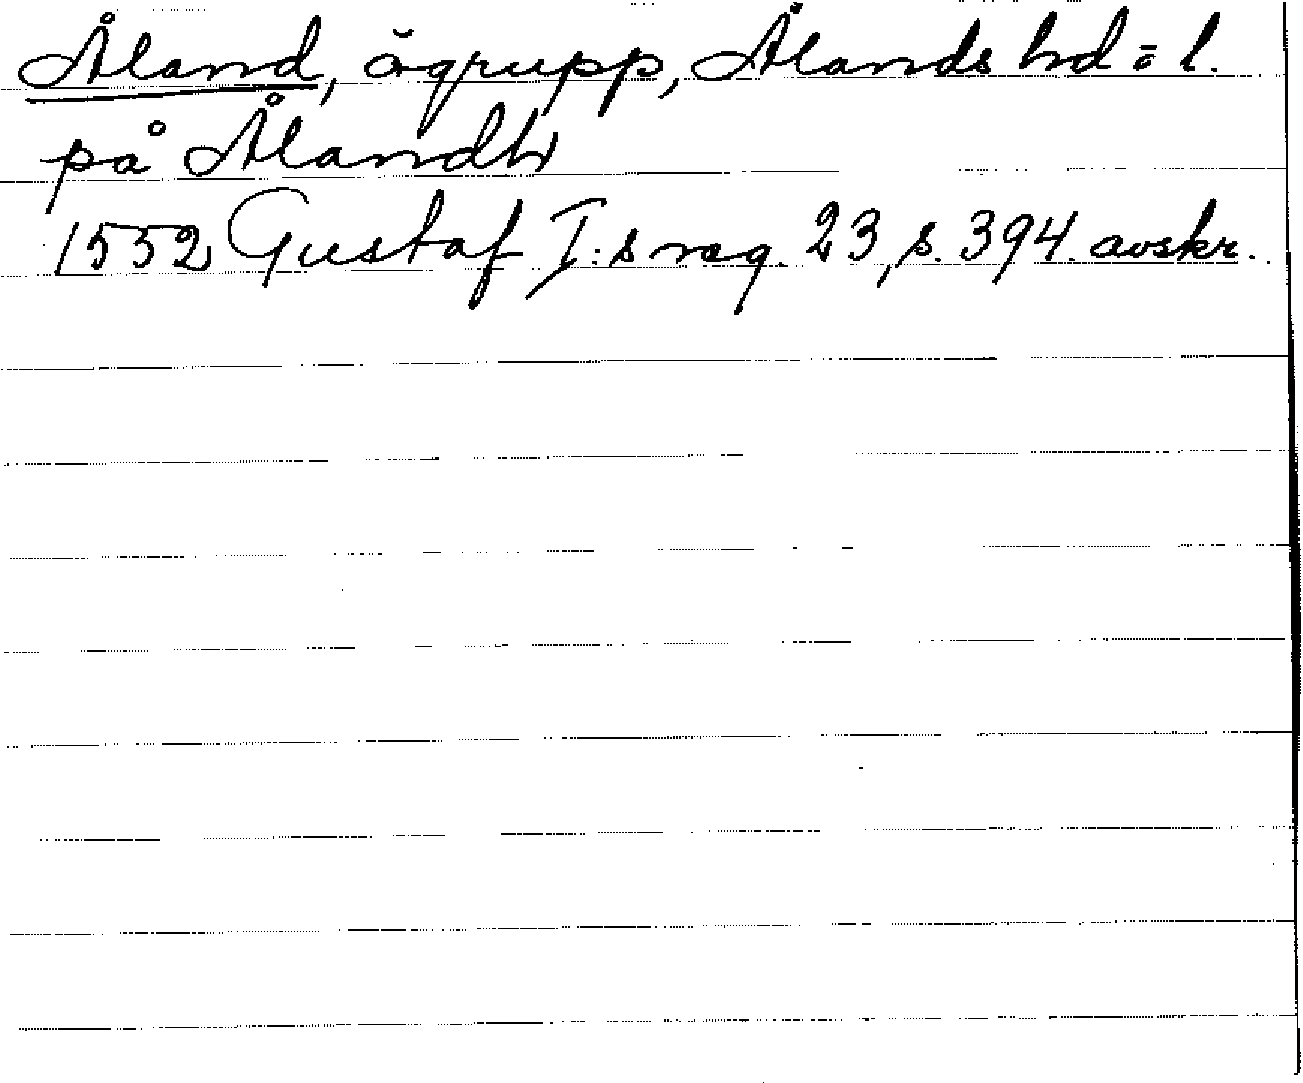 Åland, ögrupp, Ålands hd = l.
på Ålandh
1552 Gustaf I:s reg. 23, s. 394. avskr.